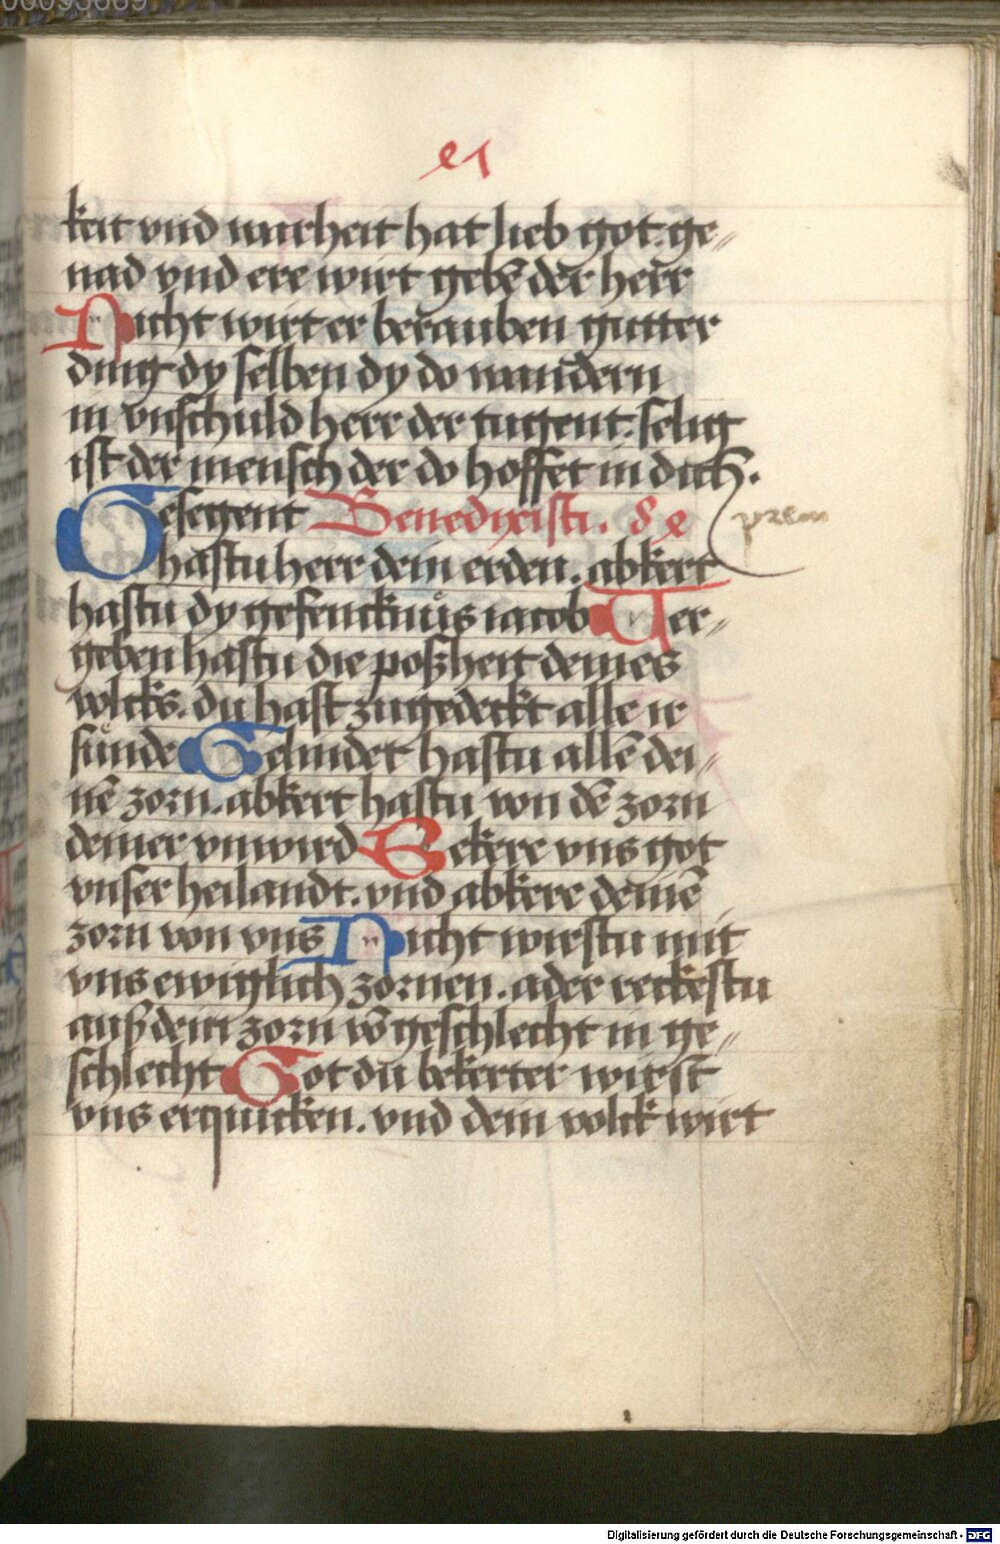 00093669
e1
keit vnd warheit hat lieb got. ge⸗
nad vnd ere wirt gebē der herr
Nicht wirt er berauben gutter
ding dy selben dy do wandern
in vnschuld herr der tugent: selig
ist der mensch der do hoffet in dich.
Gesegent Benedixisti. 8 e
hastu herr dein erden. abkert
hastu dy gefencknüs iacob Ver⸗
geben hastu die poßheit deines
volcks. du hast zugedeckt alle ir
sünde Gelindet hastu allē dei⸗
nē zorn. abkert hastu von dē zorn
deiner vnwird Bekere vns got
vnser heilandt. vnd abkere deinē
zorn von vns Nicht wirstu mit
vns ewiglich zornen. ader reckestu
auß dein zorn vō geschlecht in ge⸗
schlecht Got du bekerter wirst
vns erquicken. vnd dein volck wirt
Digitalisierung gefördert durch die Deutsche Forschungsgemeinschaft - DFG